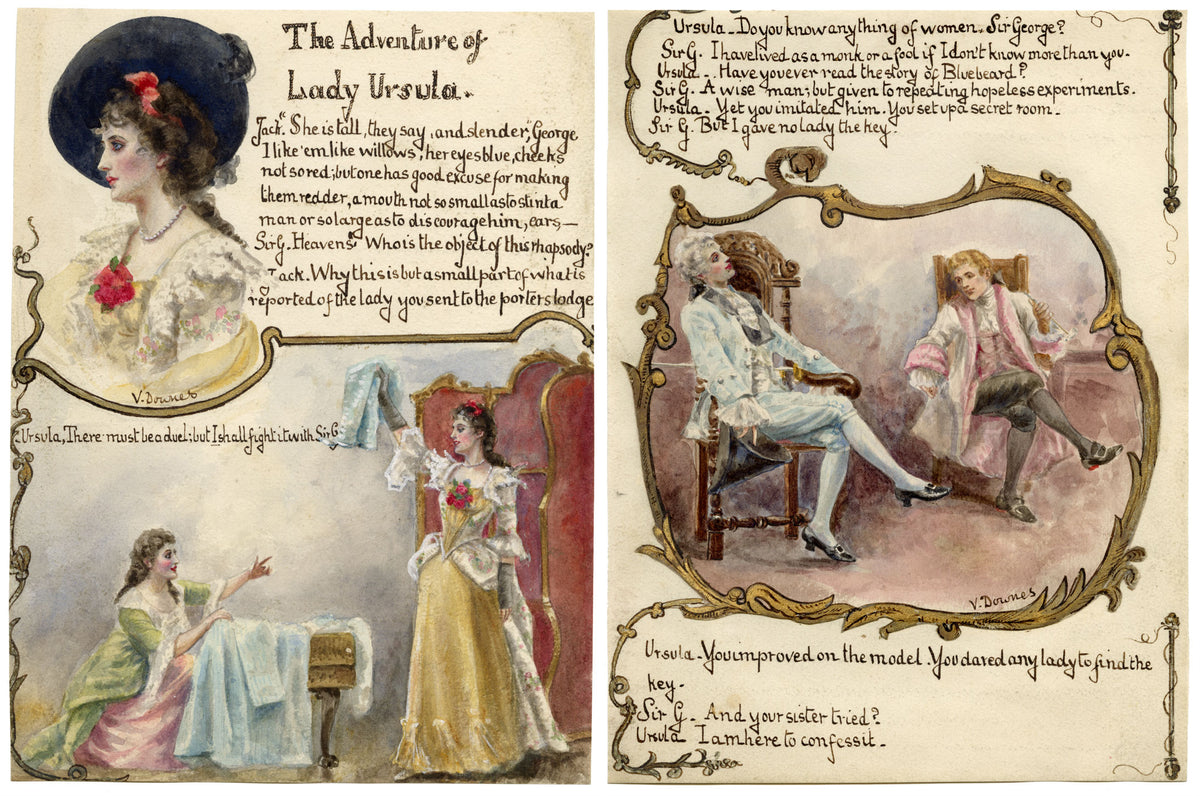 The Adventure of
Lady Ursula.
Jack." She is tall, they say, and slender," George
I like 'em like willows", her eyes blue, cheeks
not so red; but one has good excuse for making
them redder, a mouth not so small as to stint a
man or so large as to discourage him, ears—
Sir G. Heavens" Who is the object of this rhapsody?
Jack. Why this is but a small part of what is
reported of the lady you sent to the porters lodge
V. Downes
Ursula, There must be a duel; but I shall fight it with Sir G
Ursula - Do you know anything of women. Sir George?
Sir G. I have lived as a monk or a fool if I don't know more than you.
Ursula - Have you ever read the story of Bluebeard?
Sir G. A wise man; but given to repeating hopeless experiments.
Ursula - Yet you imitated him. You set up a secret room.
Sir G. But I gave no lady the key.
V. Downes
Ursula - You improved on the model. You dared any lady to find the
key.
Sir G. And your sister tried?
Ursula I am here to confess it.